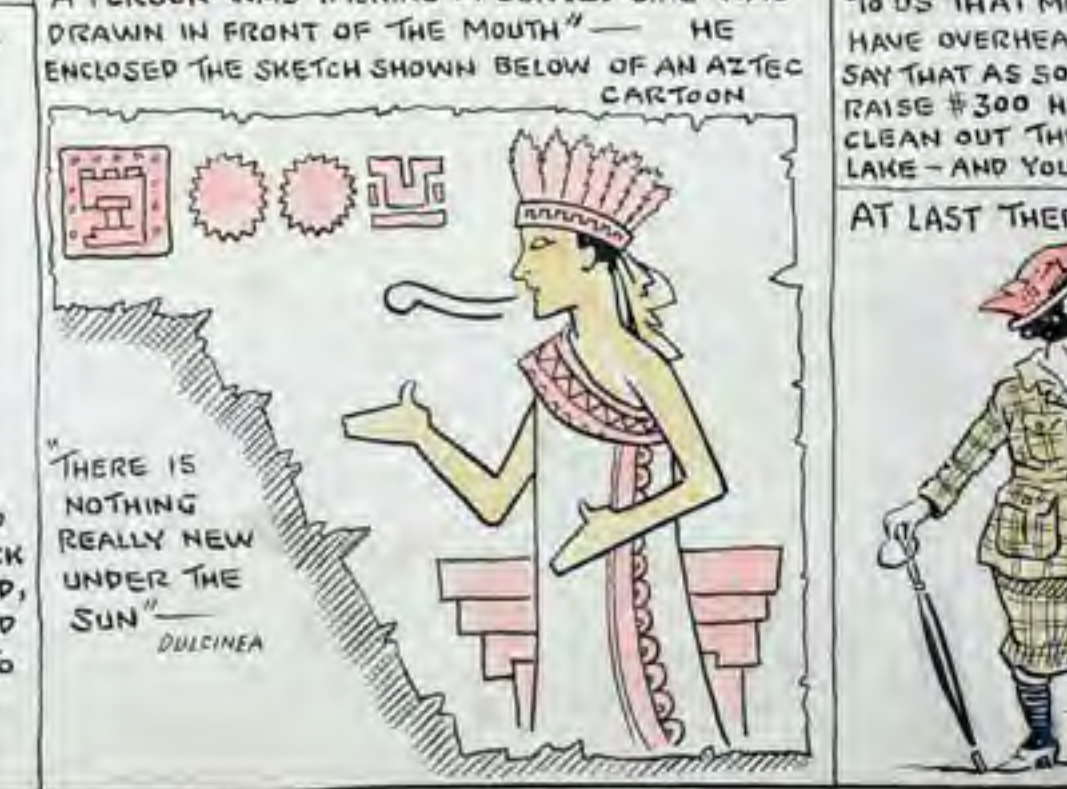 CK
D,
D
A PERSON WAS TALKING A CURVED LINE WAS
DRAWN IN FRONT OF THE MOUTH" — HE
ENCLOSED THE SKETCH SHOWN BELOW OF AN AZTEC
CARTOON
"THERE IS
NOTHING
REALLY NEW
UNDER THE
SUN" —
DULCINEA
TO US THAT M
HAVE OVERHEA
SAY THAT AS SO
RAISE $300 H
CLEAN OUT TH
LAKE - AND YOU
AT LAST THE